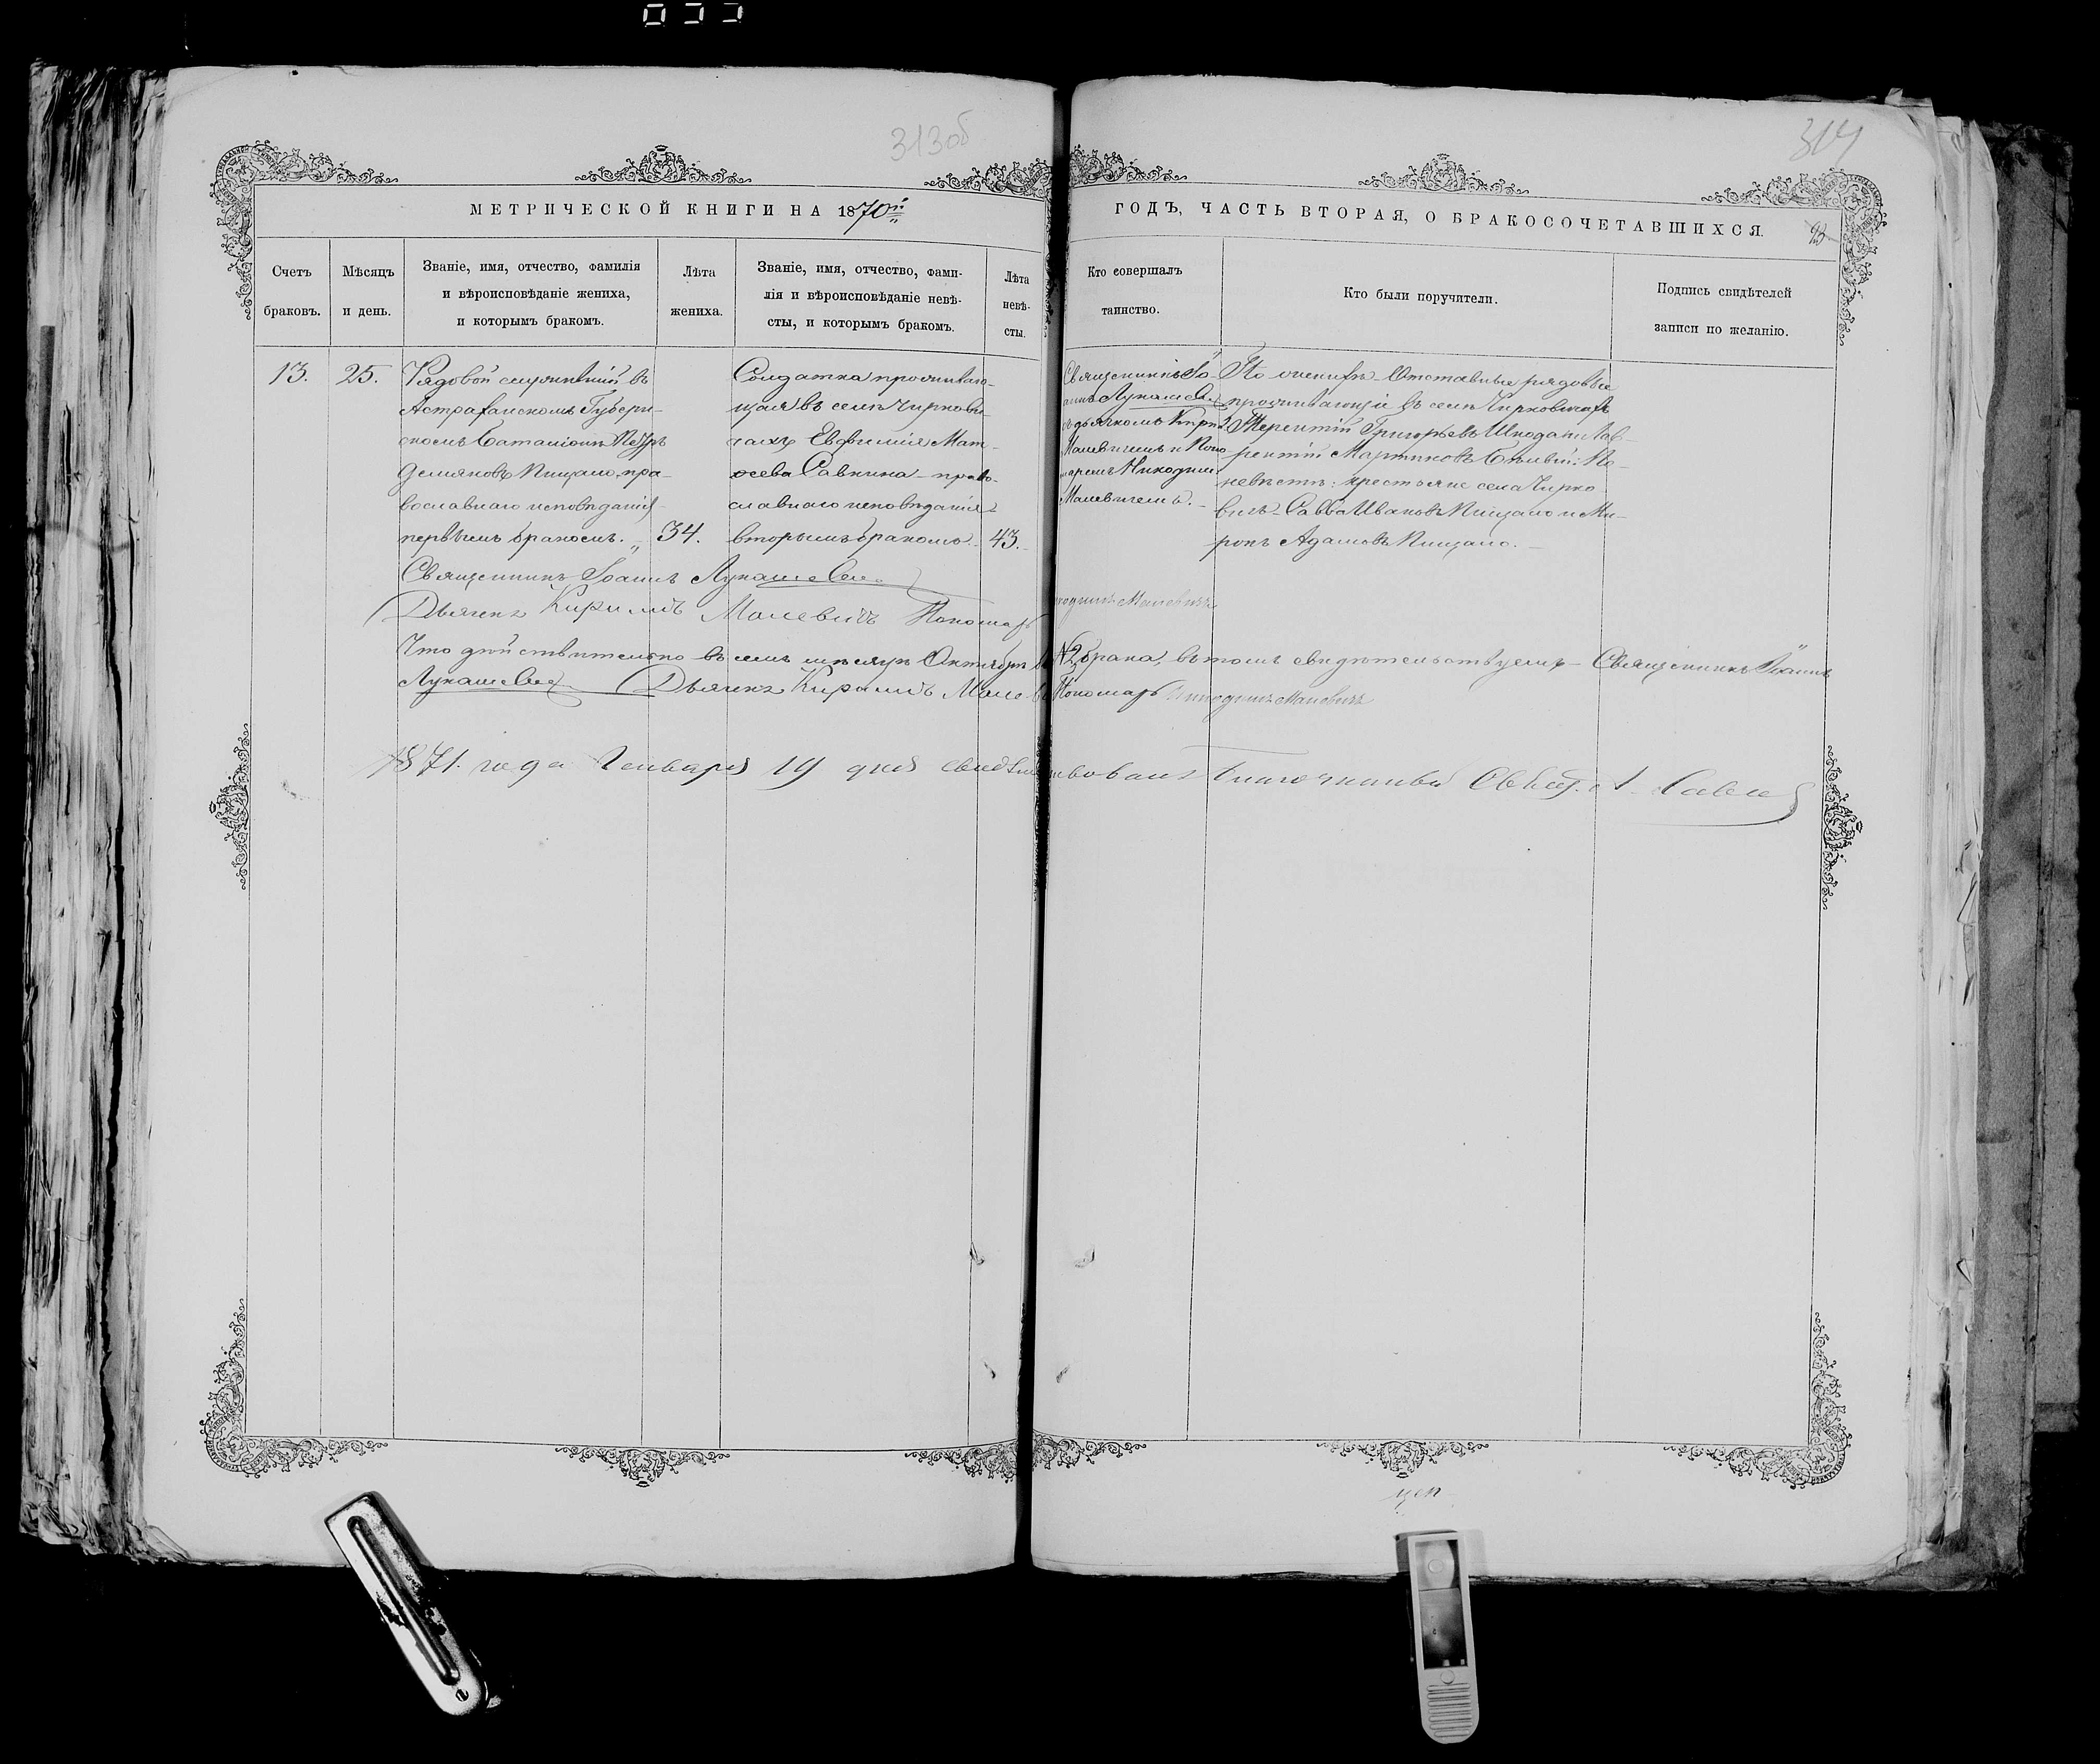 313об
314
МЕТРИЧЕСКОЙ КНИГИ НА 1870й
ГОДЪ, ЧАСТЬ ВТОРАЯ, О БРАКОСОЧЕТАВШИХСЯ.
Счетъ
браковъ.
Мѣсяцъ
и день.
Званіе, имя, отчество, фамилія
и вѣроисповѣданіе жениха,
и которымъ бракомъ.
Лѣта
жениха.
Званіе, имя, отчество, фами-
лія и вѣроисповѣданіе невѣ-
сты, и которымъ бракомъ.
Лѣта
невѣ-
сты.
Кто совершалъ
таинство.
Кто были поручители.
Подпись свидѣтелей
записи по желанію.
13.
25.
Рядовой служившій въ
Астраханскомъ Губерн-
скомъ Баталіонѣ Петръ
Демяновъ Пищало, пра-
вославнаго исповѣданія
первымъ бракомъ.
34.
Солдатка проживаю-
щая въ селѣ Чиркови-
чахъ Евдокія Мат-
ѳеева Савкина - право-
славнаго исповѣданія
вторымъ бракомъ.
43.
Священникъ Іо-
аннъ Лукашевичъ
съ дьячкомъ Кирил.
Малевичемъ и Поно
маремъ Никодим.
Малевичемъ.
По женихѣ Отставные рядовые
проживающіе въ селѣ Чирковичахъ
Терентій Григорьевъ Шкода и Лав-
рентій Мартиновъ Бѣлый: По
невѣстѣ: крестьяне села Чирко
вичъ - Савва Ивановъ Пищало и Ми-
ронъ Адамовъ Пищало.
Священникъ Іоаннъ Лукашевичъ
Дьячекъ Кирилъ Малевичъ Пономарь Никодимъ Малевичъ
Что дѣйствительно въ семъ мѣсяцѣ Октябрѣ 2 брака, въ томъ свидѣтельствуемъ - Священникъ Іоаннъ
Лукашевичъ Дьячекъ Кирилъ Малевичъ Пономарь Никодимъ Малевичъ
1871. года Генваря 19 дня свидѣтельствовалъ Благочинный